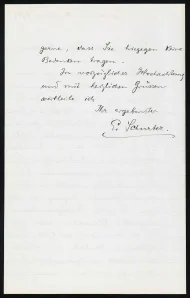 gerne, dass Sie hiegegen keine
Bedenken tragen.
In vorzüglicher Hochachtung
und mit herzlichen Grüssen
verbleibe ich
Ihr ergebenster